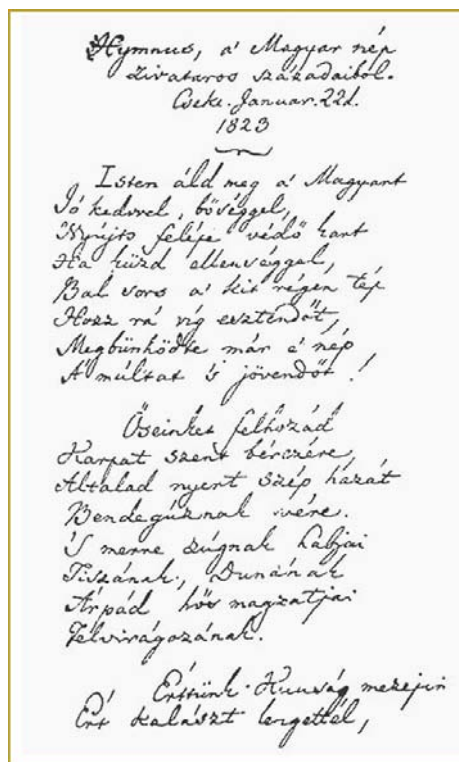 Hymnus, a' Magyar nép
zivataros századaiból.
Cseke. Januar. 22d.
1823
Isten áld meg a' Magyart
Jó kedvvel, bőséggel,
Nyújts feléje védő kart
Ha küzd ellenséggel,
Bal sors a' kit régen tép
Hozz rá víg esztendőt,
Megbünhödte már e' nép
A' múltat 's jövendőt!
Őseinket felhozád
Kárpát szent bérczére,
Általad nyert szép hazát
Bendegúznak vére.
'S merre zúgnak habjai
Tiszának, Dunának
Árpád hős magzatjai
Felvirágozának.
Értünk Kunság mezején
Ért kalászt lengettél,